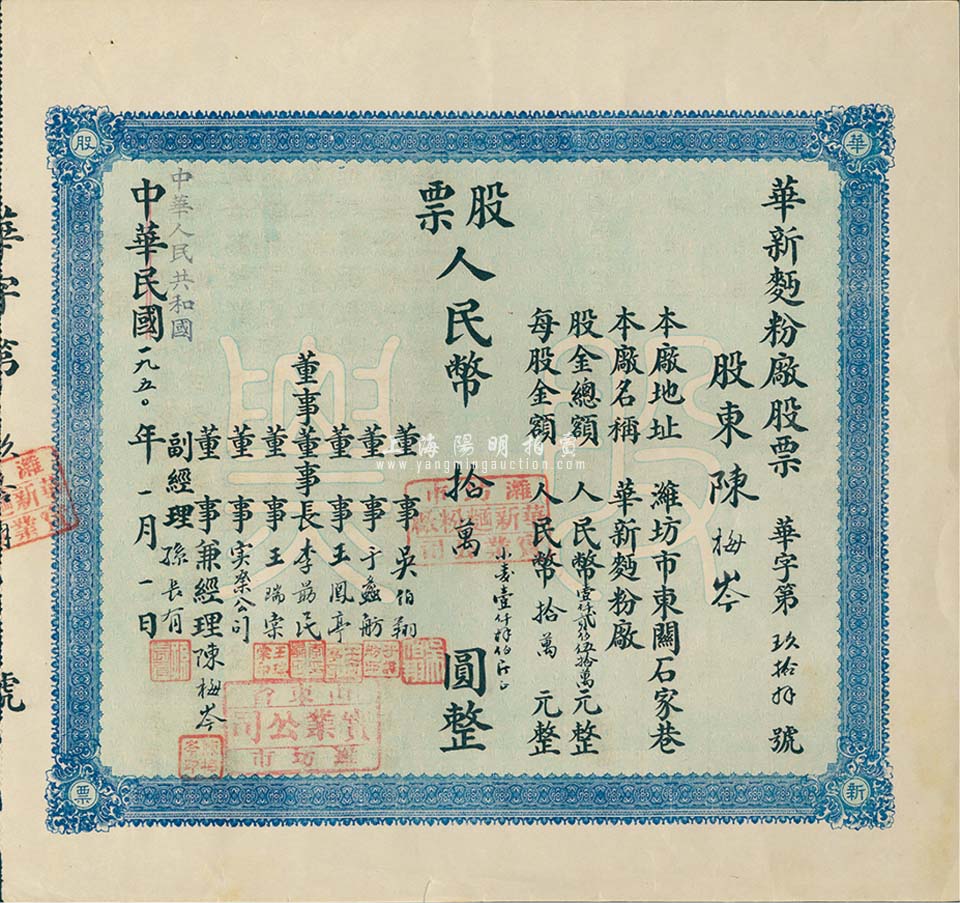 華新麪粉廠股票
華字第玖拾肆號
股東陳梅岑
本廠地址濰坊市東關石家巷
本廠名稱華新麪粉廠
股金總額人民幣壹仟貳佰伍拾萬元整
每股金額人民幣拾萬元整
股票
人民幣拾萬圓整
董事吳伯翔
董事于
董事王鳳亭
董事長李勗民
董事王瑞棠
董事实業公司
董事兼經理陳梅岑
副經理孫長有
中華人民共和國
中華民國一九五〇年一月一日
華
新
股
票
股票
濰坊市
華新麵粉廠
實業公司
山東省
實業公司
濰坊市
華字第
號
上海陽明拍賣
www.yangmingauction.com